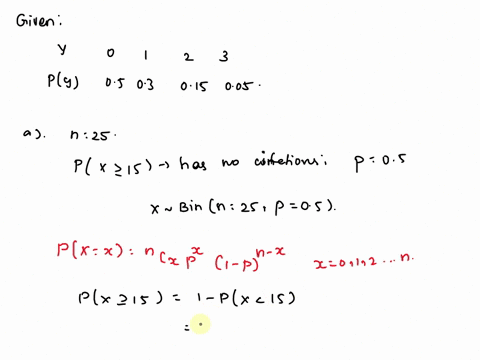 Given:
y 0 1 2 3
P(y) 0.5 0.3 0.15 0.05.
a). n: 25.
P(x ≥ 15) → has no citations: p = 0.5
x ~ Bin (n: 25, p = 0.5).
P(x = x) : n Cx p^x (1-p)^{n-x} x = 0, 1, 2 ... n.
P(x ≥ 15) = 1 - P(x < 15)
=